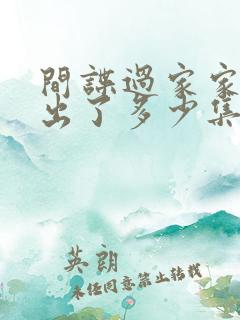 間諜過家家
出了多少集
英朗
未经同意禁止转载